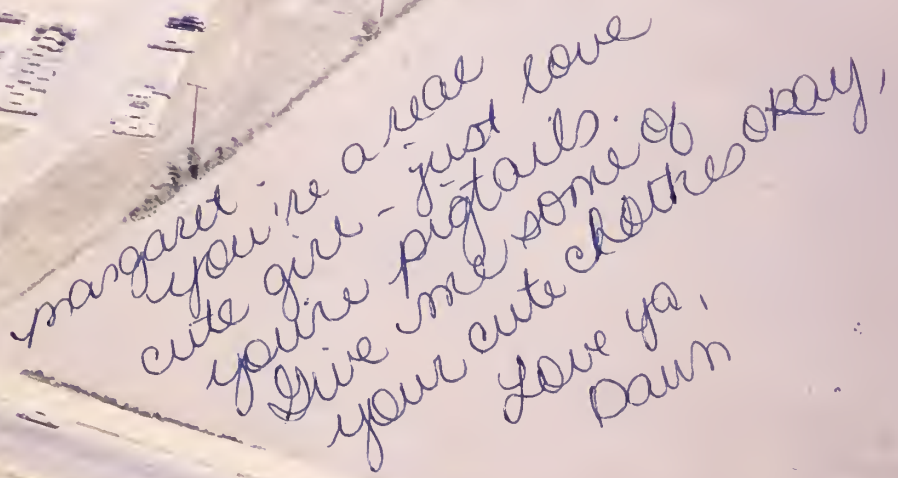 Margaret.
you're a real
cute girl - just love
you're pigtails.
Give me some of
your cute clothes okay,
Love ya,
Dawn